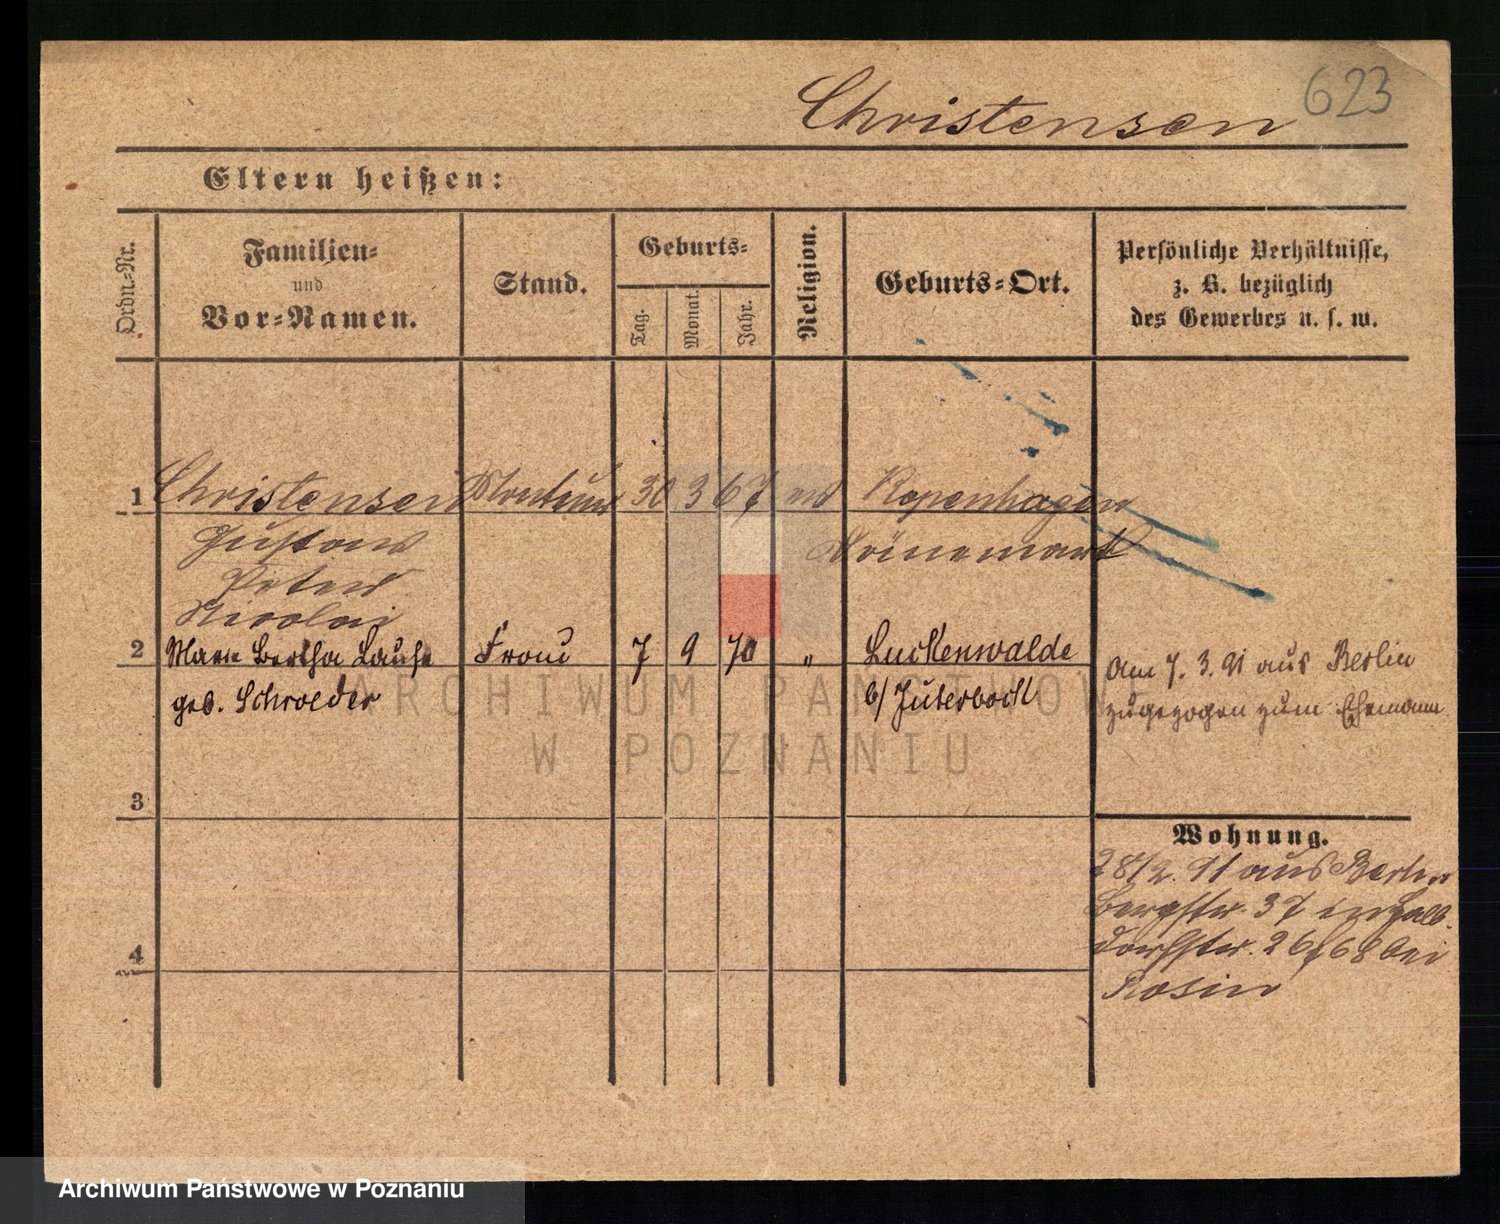 Christensen 623
Eltern heißen:
Ordn.=Nr.
Familien=
und
Vor=Namen.
Stand.
Geburts=
Tag.
Monat.
Jahr.
Religion.
Geburts=Ort.
Persönliche Verhältnisse,
z. B. bezüglich
des Gewerbes u. s. w.
1 Christensen Monteur 30 3 67 ev Kopenhagen
Gustav Dänemark
Peter
Nicolai
2 Marie Bertha Frau 7 9 70 " Luckenwalde
geb. Schroeder b/ Jüterbock
Am 7. 3. 91 aus Berlin
zugezogen zum Ehemann
3
Wohnung.
28/2. 91 aus Berlin
Bergstr. 37
26/68 bei
Rosin
4
ARCHIWUM PAŃSTWOW
W POZNANIU
Archiwum Państwowe w Poznaniu